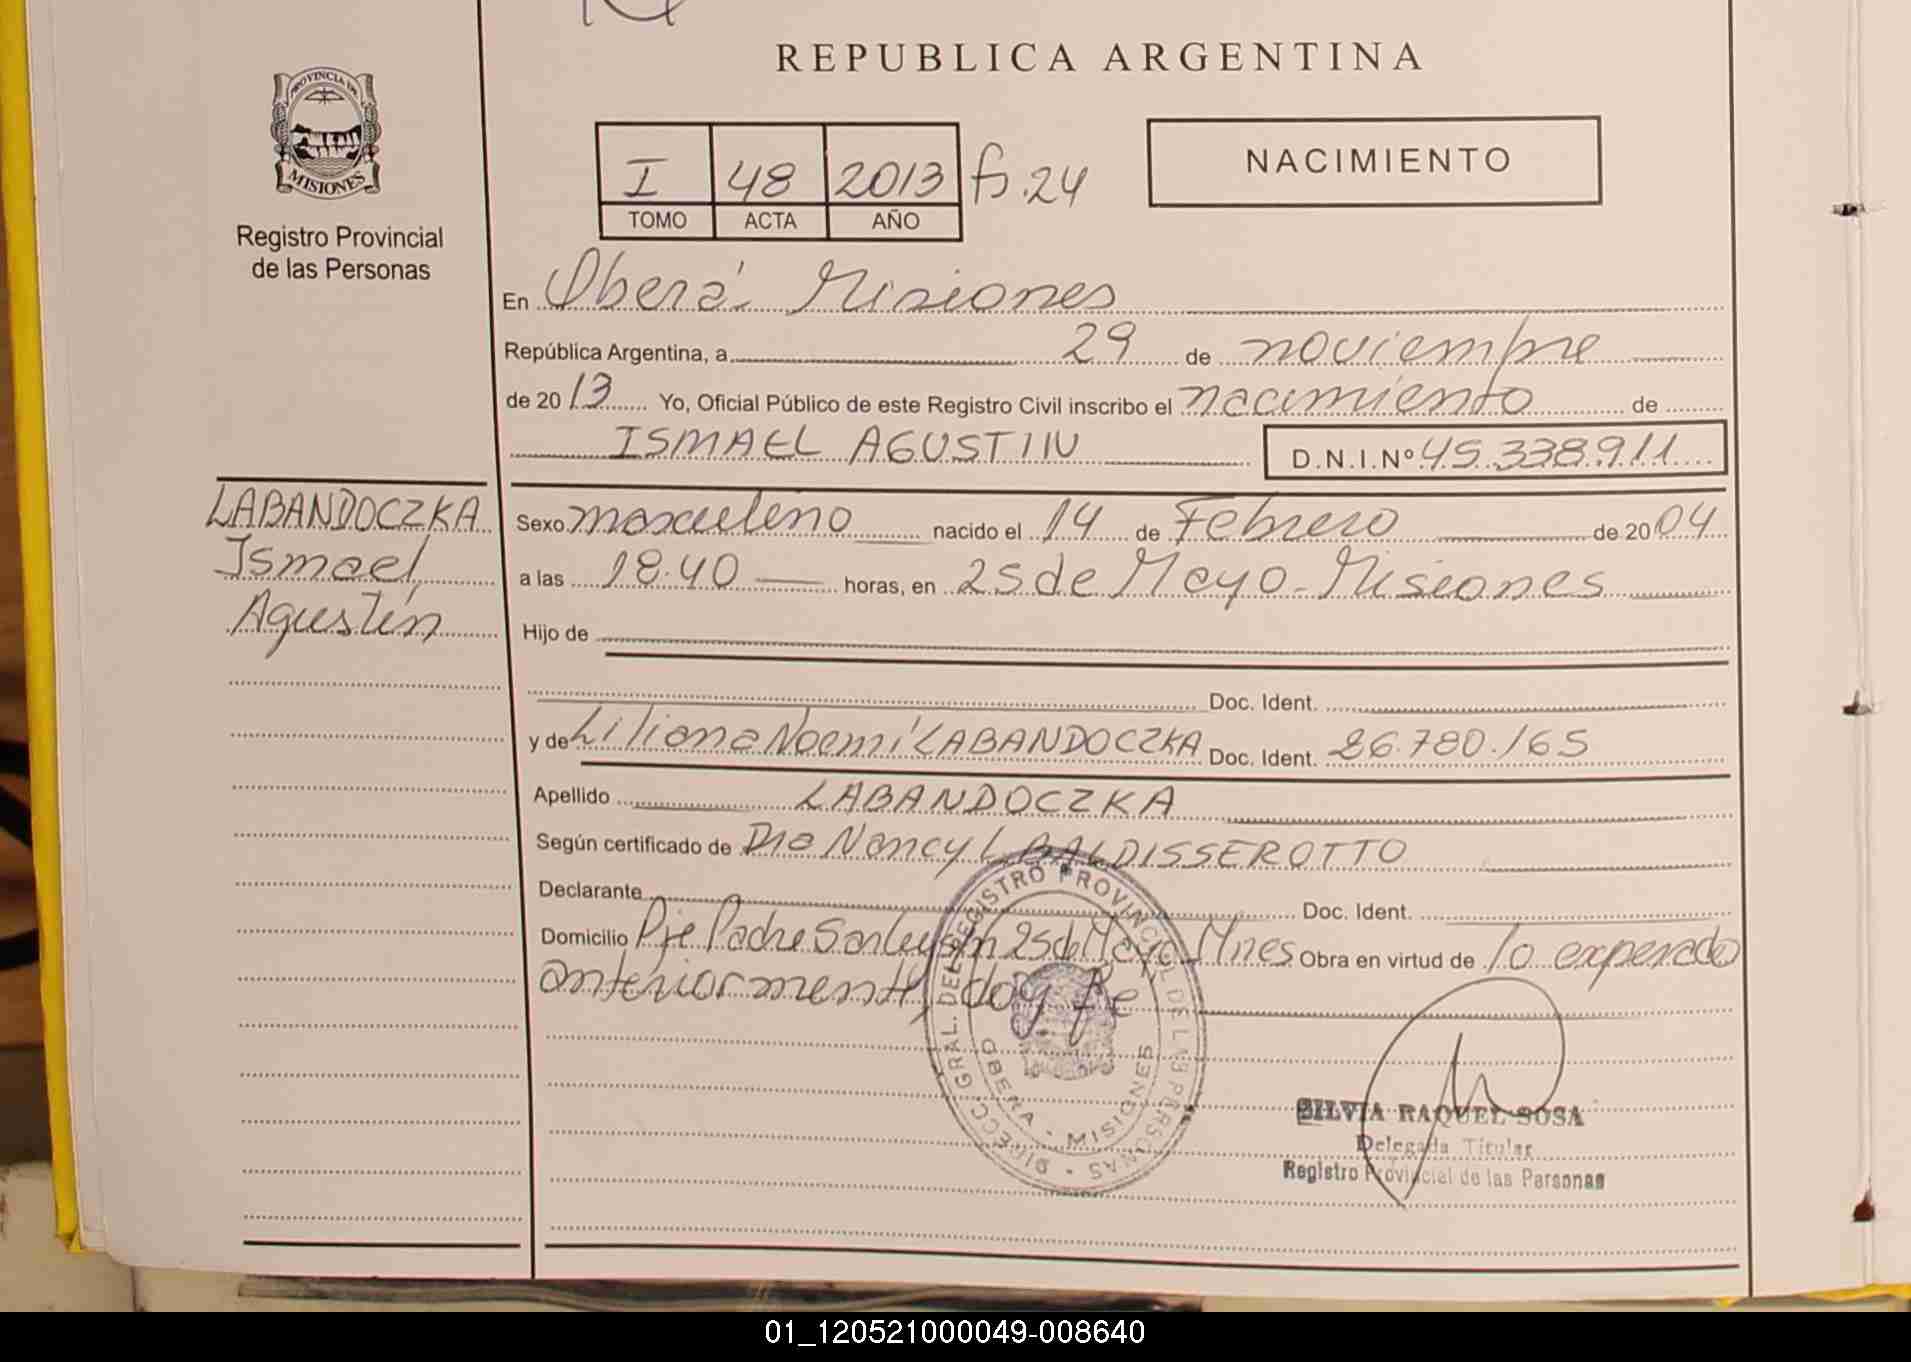 REPUBLICA ARGENTINA
PROVINCIA DE
MISIONES
Registro Provincial
de las Personas
I 48 2013 fs. 24
TOMO ACTA AÑO
NACIMIENTO
En Oberá Misiones
República Argentina, a 29 de noviembre
de 2013 Yo, Oficial Público de este Registro Civil inscribo el nacimiento de
ISMAEL AGUSTIN D.N.I.Nº 45.338.911
LABANDOCZKA
Ismael
Agustín
Sexo masculino nacido el 14 de Febrero de 2004
a las 18.40 horas, en 25 de Mayo - Misiones
Hijo de
Doc. Ident.
y de Liliana Noemí LABANDOCZKA Doc. Ident. 26.780.165
Apellido LABANDOCZKA
Según certificado de Dra Nancy L BALDISSEROTTO
Declarante Doc. Ident.
Domicilio Pje Padre s/n 25 de Mayo Mnes Obra en virtud de lo expresado
anteriormente, doy fe
DIRECC. GRAL. DEL REGISTRO PROVINCIAL DE LAS PERSONAS
OBERA - MISIONES
SILVIA RAQUEL SOSA
Delegada Titular
Registro Provincial de las Personas
01_120521000049-008640